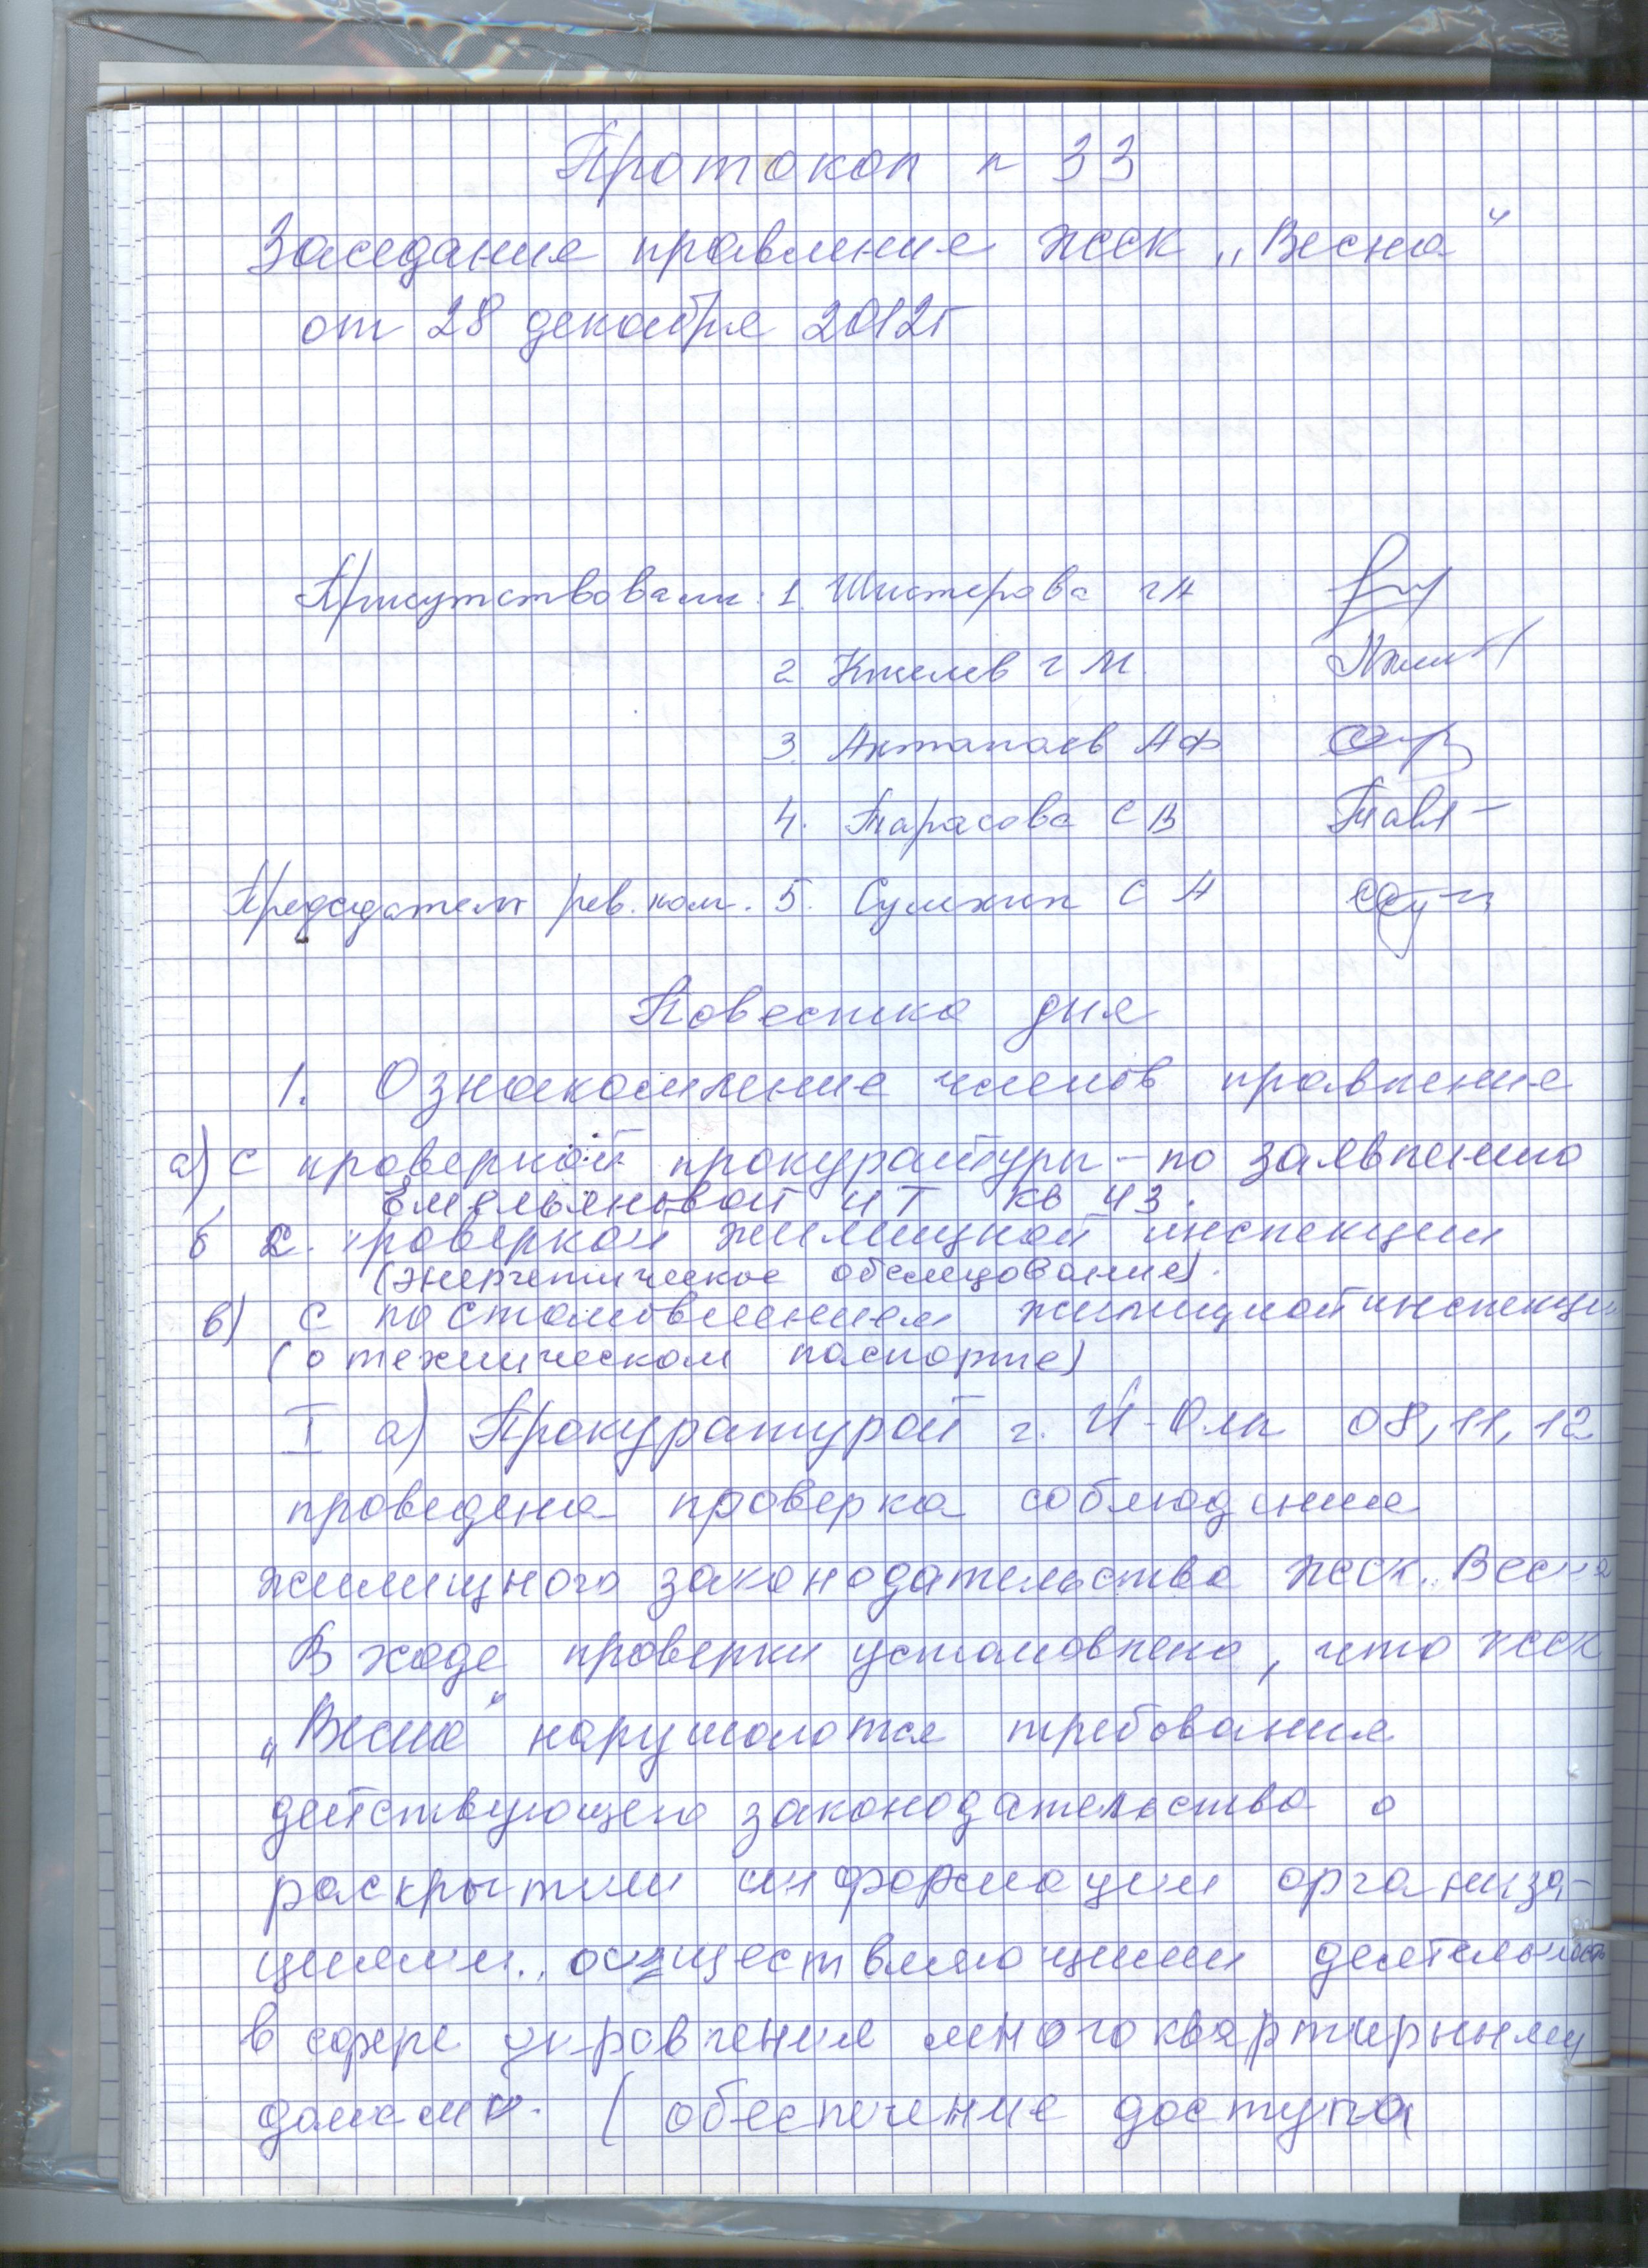 Протокол n 33
Заседание правление жсск „Весна“
от 28 декабря 2012г
Присутствовали: 1. Шистерова гА
2 Кželев г М.
3. Актапаев АФ
4. Тарасова С В
Председатель рев. ком. 5. Сумкин С А
Повестка дня
1. Ознакомление членов правление
а) с проверкой прокуратуры - по заявлению
Емельяновой ИТ кв 43.
б 2. проверкой жилищной инспекции
(энергетическое обследование).
в) с постановлением жилищной инспекци
(о техническом паспорте)
I а) Прокуратурой г. Й-Олы 08,11,12
проведена проверка соблюдение
жилищного законодательства жсск. Весна
В ходе проверки установлено, что жсск
„Весна“ нарушаются требование
действующего законодательства о
раскрытии информации организа-
циями.. осуществляющими деятельность
в сфере управление многоквартирными
домами. (обеспечение доступа